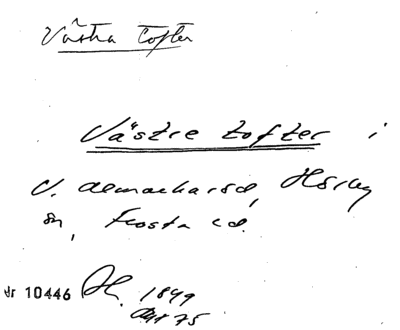 Västra Tofter
Västre tofter i
V. allmänharad, Hörby
sn, Frosta hd.
Nr 10446 Ah. 1849
Akt 75